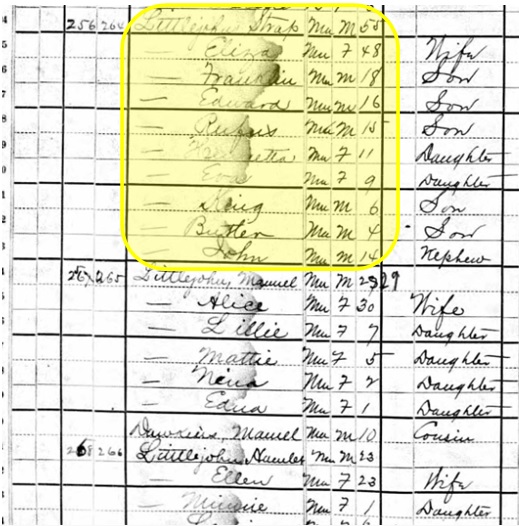 256 264 Littlejohn Strap Mu M 55
— Eliza Mu F 48 Wife
— Franklin Mu M 18 Son
— Edward Mu M 16 Son
— Rufus Mu M 15 Son
— Mu F 11 Daughter
— Eva Mu F 9 Daughter
— King Mu M 6 Son
— Butler Mu M 4 Son
John Mu M 14 Nephew
265 Littlejohn, Manuel Mu M 29
— Alice Mu F 30 Wife
— Lillie Mu F 7 Daughter
— Mattie Mu F 5 Daughter
— Nena Mu F 2 Daughter
— Edna Mu F 1 Daughter
Dawkins, Manuel Mu M 10 Cousin
266 Littlejohn, Hamlet Mu M 23
— Ellen Mu F 23 Wife
— Minnie Mu F 1 Daughter